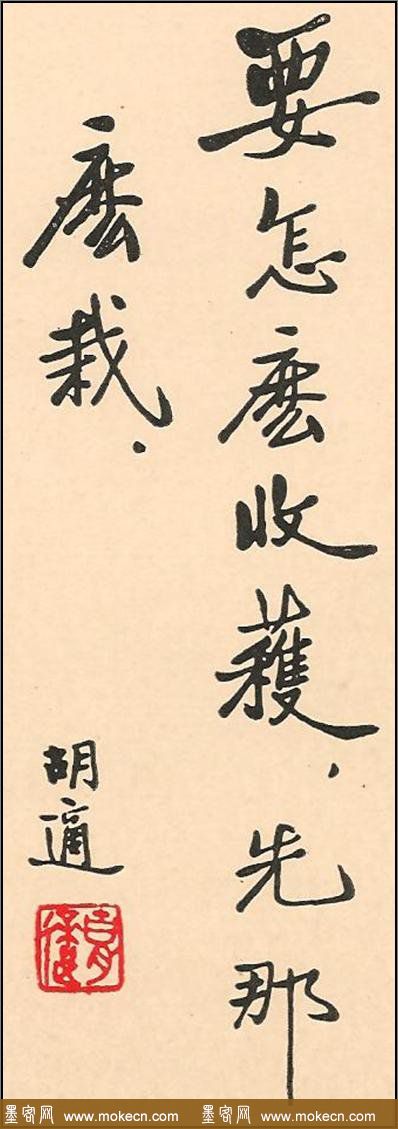 要怎麼收穫，先那
麼栽．
胡適
墨客网 www.mokecn.com 墨客网 www.mokecn.com